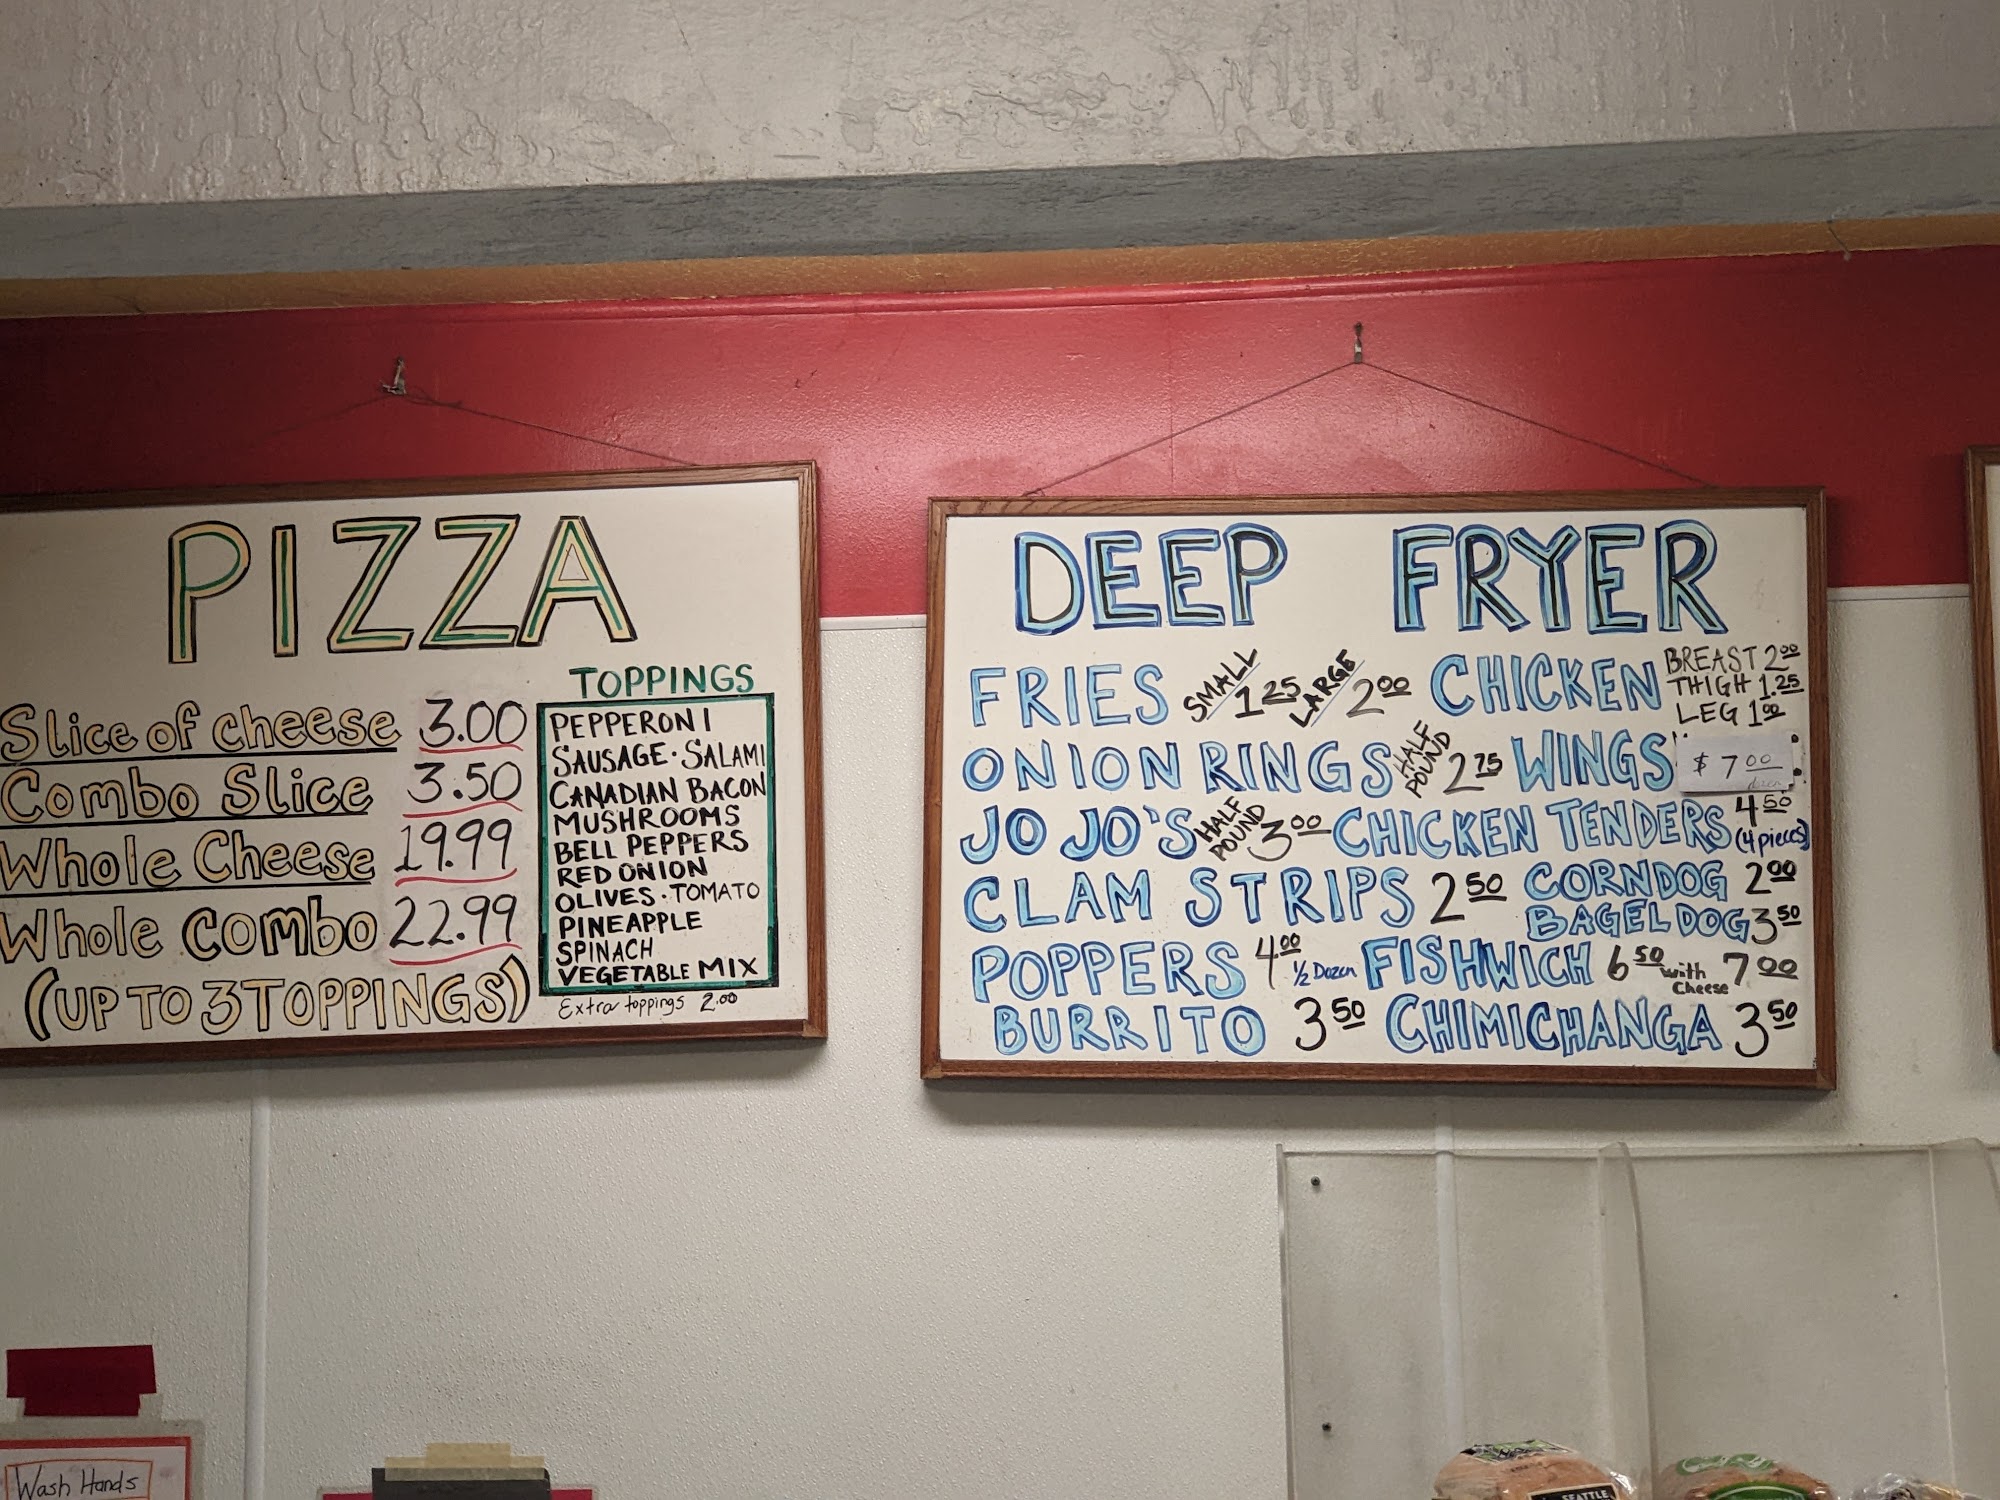 PIZZA
Slice of cheese 3.00
Combo Slice 3.50
Whole Cheese 19.99
Whole combo 22.99
(UP TO 3 TOPPINGS)
TOPPINGS
PEPPERONI
SAUSAGE · SALAMI
CANADIAN BACON
MUSHROOMS
BELL PEPPERS
RED ONION
OLIVES · TOMATO
PINEAPPLE
SPINACH
VEGETABLE MIX
Extra toppings 2.00
DEEP FRYER
FRIES SMALL 1.25 LARGE 2.00 CHICKEN BREAST 2.00
THIGH 1.25
LEG 1.00
ONION RINGS HALF POUND 2.75 WINGS $7.00 dozen
JO JO'S HALF POUND 3.00 CHICKEN TENDERS 4.50 (4 pieces)
CLAM STRIPS 2.50 CORNDOG 2.00
BAGEL DOG 3.50
POPPERS 4.00 1/2 Dozen FISHWICH 6.50 with Cheese 7.00
BURRITO 3.50 CHIMICHANGA 3.50
Wash Hands
SEATTLE